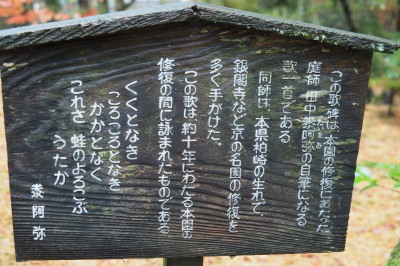 この歌碑は、本園の修復にあたった
庭師 田中泰阿弥の自筆になる
たいあみ
歌一首である
同師は、本県柏崎の生れで、
銀閣寺など京の名園の修復を
多く手がけた。
この歌は 約十年にわたる本園の
修復の間に詠まれたものである
くくとなき
ころころとなき
かかとなく
これさ 蛙のよろこぶ
うたか
泰阿弥